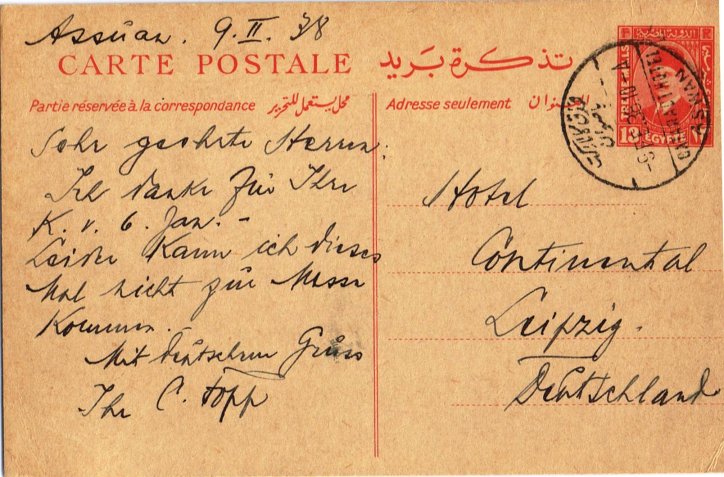 Assuan. 9. II. 38
CARTE POSTALE تذكرة بريد
Partie réservée à la correspondance محل يستعمل للتحرير
Adresse seulement العنوان
Sehr geehrte Herren:
Ich danke für Ihre
K. v. 6. Jan. -
Leider kann ich dieses
Mal nicht zur Messe
kommen.
Mit deutschem Gruss
Ihr C. Topp
Hotel
Continental
Leipzig.
Deutschland
الدولة المصرية
MILLS
13 EGYPTE ١٣
ASWAN
CATARACT HOTEL